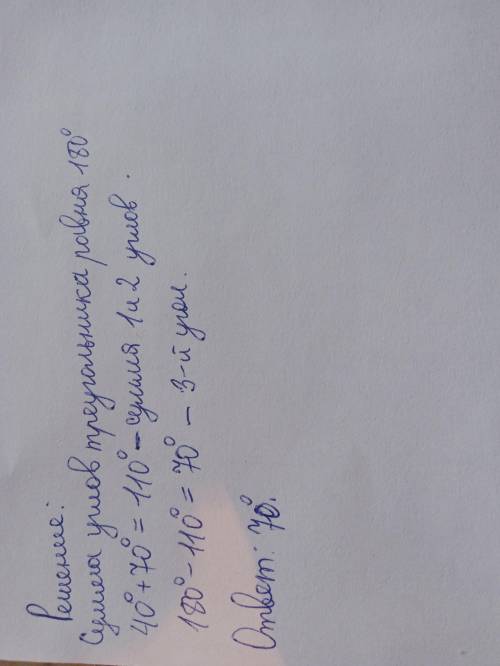 Решение:
Сумма углов треугольника равна 180°
40°+70°=110° – сумма 1 и 2 углов.
180°-110°=70° – 3-й угол.
Ответ: 70°.